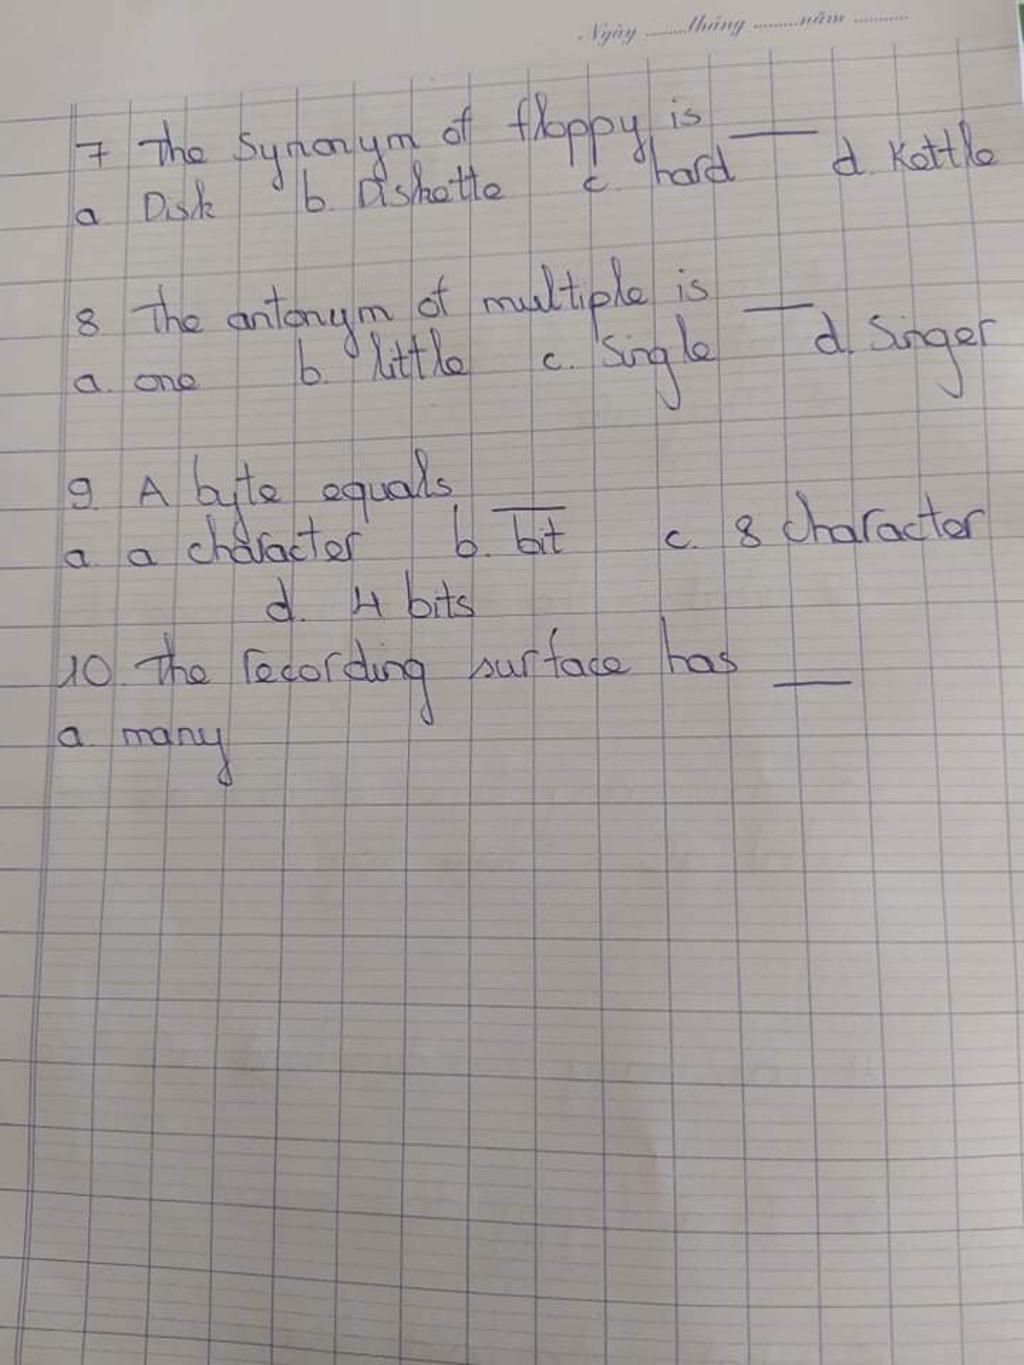 Ngày ........tháng .........năm ...........
7 The Synonym of floppy is ___
a Disk b. Diskette c. hard d. Kettle
8 The antonym of multiple is ___
a. one b. little c. Single d. Singer
9 A byte equals ___
a a character b. bit c. 8 Character
d. 4 bits
10 The recording surface has ___
a. many